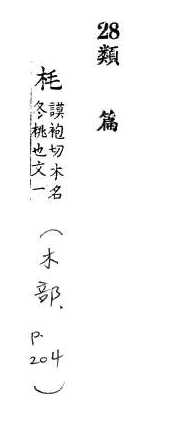 28類 篇
枆 謨袍切木名
冬桃也文一
(木部、P.204)